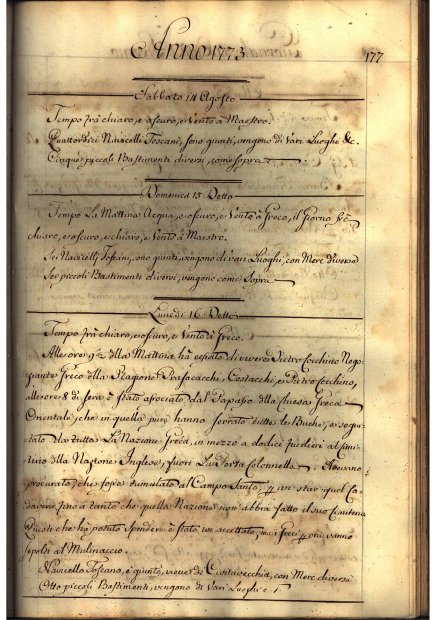 Anno 1773
177
Sabbato 14 Agosto
Tempo frà chiaro, e oscuro, e Vento à Maestro.
Quattordici Navicelli Toscani, sono giunti, vengono di Vari Luoghi &c.
Cinque piccoli Bastimenti diversi, come sopra
Domenica 15 Detto
Tempo La Mattina Acqua, e oscuro, e Vento à Greco, il Giorno frà
chiaro, e oscuro, e chiaro, e Vento à Maestro.
Sei Navicelli Toscani, sono giunti, vengono di Vari Luoghi, con Merc diverse
Sei piccoli Bastimenti diversi, vengono come Sopra
Lunedì 16 Detto
Tempo frà chiaro, e oscuro, e Vento à Greco.
Alle ore 9½ della Mattina hà cessato di vivere Pietro Cocchino Nego-
ziante Greco della Ragione Costacchi, e Pietro Cocchino,
alle ore 8 di sera è stato associato dal Papasso della Chiesa Greca
Orientale, che in quella pure hanno serrato tutte le Buche, e segui-
tato da tutta La Nazione Greca, in mezzo a dodici fucilieri al Cimi-
terio della Nazione Inglese, fuori La Porta Colonnella. Avevano
procurato, che fosse tumulato al Campo Santo, p ivi star quel Ca-
davere fino a tanto che quella Nazione non abbia fatto il suo Cimiterio
Questi che hà potuto spendere è stato ivi accettato, ma i Greci p ora vanno
sepolti al Mulinaccio.
Navicello Toscano, è giunto, viene di Civitavecchia, con Merc diverse
Otto piccoli Bastimenti, vengono di Vari Luoghi &c.